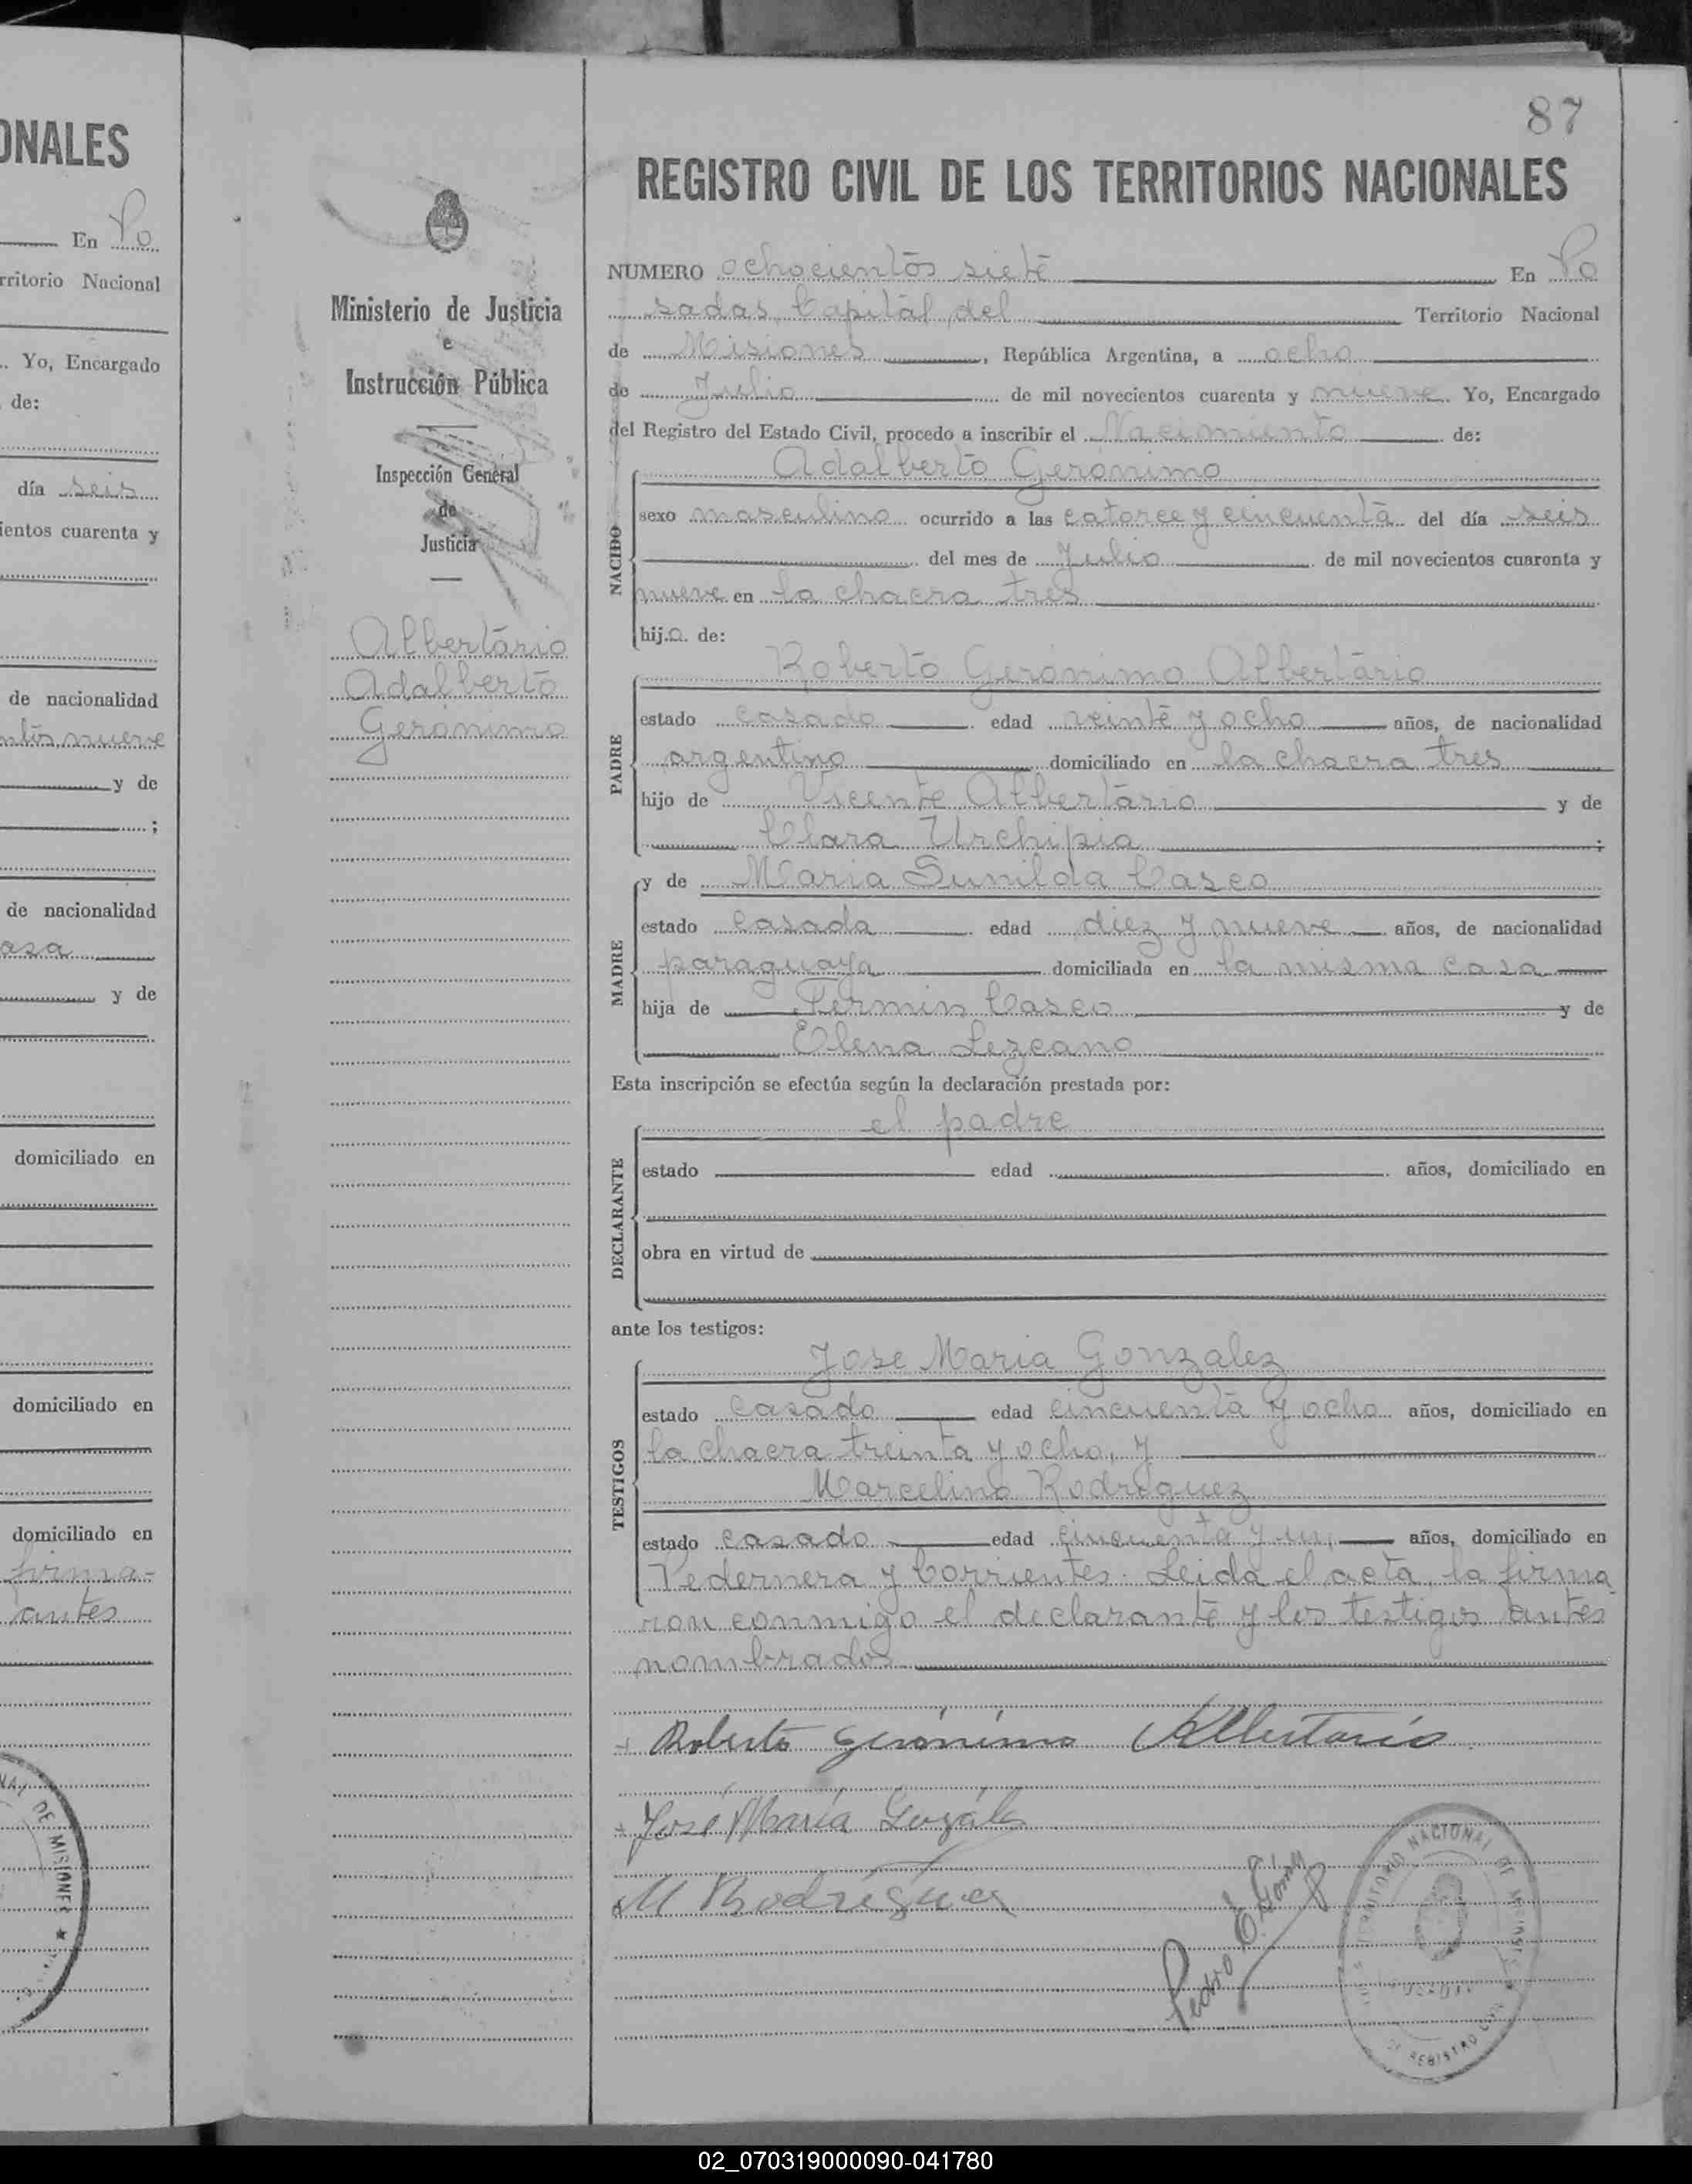 ONALES
En Po
rritorio Nacional
Yo, Encargado
de:
día seis
ientos cuarenta y
de nacionalidad
nueve
y de
;
de nacionalidad
asa
y de
domiciliado en
domiciliado en
domiciliado en
firma-
antes
DE MISIONES ★
Ministerio de Justicia
e
Instrucción Pública
Inspección General
de
Justicia
Albertário
Adalberto
Gerónimo
87
REGISTRO CIVIL DE LOS TERRITORIOS NACIONALES
NUMERO ochocientos siete En Po
sadas, Capital del Territorio Nacional
de Misiones, República Argentina, a ocho
de Julio de mil novecientos cuarenta y nueve Yo, Encargado
del Registro del Estado Civil, procedo a inscribir el Nacimiento de:
Adalberto Gerónimo
NACIDO
sexo masculino ocurrido a las catorce y cincuenta del día seis
del mes de Julio de mil novecientos cuarenta y
nueve en la chacra tres
hijo de:
Roberto Gerónimo Albertário
PADRE
estado casado edad veinte y ocho años, de nacionalidad
argentino domiciliado en la chacra tres
hijo de Vicente Albertário y de
Clara Urchipia;
MADRE
y de Maria Sunilda Casco
estado casada edad diez y nueve años, de nacionalidad
paraguaya domiciliada en la misma casa
hija de Fermin Casco y de
Elena Lezcano
Esta inscripción se efectúa según la declaración prestada por:
el padre
DECLARANTE
estado edad años, domiciliado en
obra en virtud de
ante los testigos:
Jose Maria Gonzalez
TESTIGOS
estado casado edad cincuenta y ocho años, domiciliado en
la chacra treinta y ocho, y
Marcelino Rodriguez
estado casado edad cincuenta y un años, domiciliado en
Pedernera y Corrientes. Leida el acta, la firma
ron conmigo el declarante y los testigos antes
nombrados
+ Roberto Gerónimo Albertario
+ José María Gozáles
M Rodríguez
Pedro E. Gómez
TERRITORIO NACIONAL DE MISIONES
REGISTRO CIVIL
02_070319000090-041780